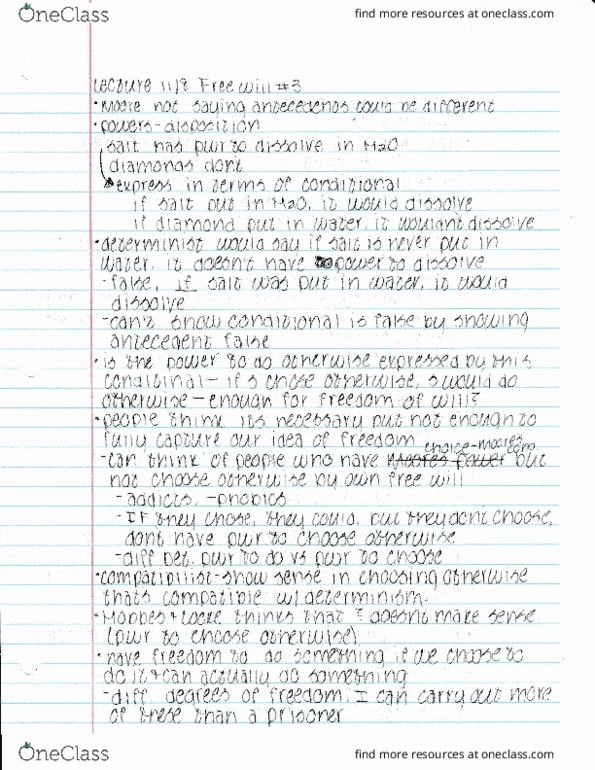 OneClass
find more resources at oneclass.com
Lecture 11/8 Free Will #3
• Moore not saying antecedents could be different
• powers - disposition
salt has pwr to dissolve in H2O
diamonds dont
express in terms of conditional
if salt put in H2O, it would dissolve
if diamond put in water, it wouldnt dissolve
• determinist would say if salt is never put in
water, it doesn't have power to dissolve
- false, if salt was put in water, it would
dissolve
- can't show conditional is false by showing
antecedent false
• is the power to do otherwise expressed by this
conditional - if s chose otherwise, s would do
otherwise - enough for freedom of will?
• people think its necessary but not enough to
fully capture our idea of freedom
choice - moores cond
- can think of people who have Moores power but
not choose otherwise by own free will
- addicts, - phobics
- IF they chose, they could, but they dont choose,
dont have pwr to choose otherwise
- diff bet. pwr to do vs pwr to choose
• compatibilist - show sense in choosing otherwise
thats compatible w/ determinism.
• Hobbes + Locke thinks that ↑ doesnt make sense
(pwr to choose otherwise)
• have freedom to do something if we choose to
do it + can actually do something
- diff degrees of freedom, I can carry out more
of these than a prisoner
OneClass
find more resources at oneclass.com